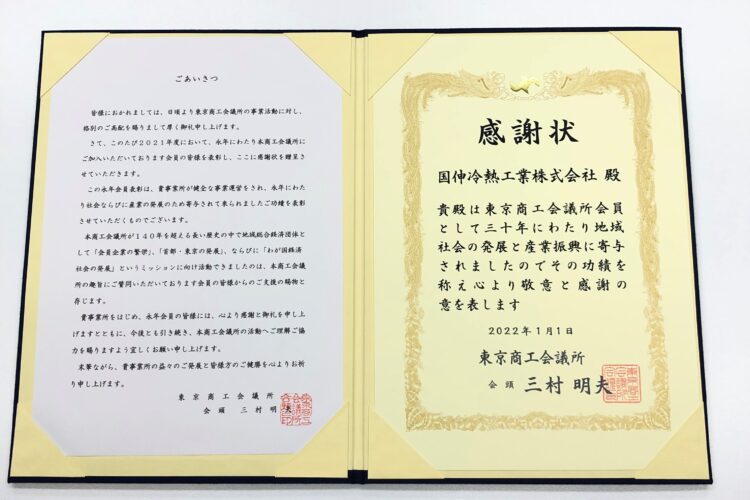 ごあいさつ
皆様におかれましては、日頃より東京商工会議所の事業活動に対し、
格別のご高配を賜りまして厚く御礼申し上げます。
さて、このたび2021年度において、永年にわたり本商工会議所に
ご加入いただいております会員の皆様を表彰し、ここに感謝状を贈呈さ
せていただきます。
この永年会員表彰は、貴事業所が健全な事業運営をされ、永年にわた
り社会ならびに産業の発展のため寄与されて来られましたご功績を表彰
させていただくものでございます。
本商工会議所が140年を超える長い歴史の中で地域総合経済団体と
して「会員企業の繁栄」、「首都・東京の発展」、ならびに「わが国経済
社会の発展」というミッションに向け活動できましたのは、本商工会議
所の趣旨にご賛同いただいております会員の皆様からのご支援の賜物と
存じます。
貴事業所をはじめ、永年会員の皆様には、心より感謝と御礼を申し上
げますとともに、今後とも引き続き、本商工会議所の活動へご理解ご協
力を賜りますよう宜しくお願い申し上げます。
末筆ながら、貴事業所の益々のご発展と皆様方のご健勝を心よりお祈
り申し上げます。
東京商工会議所
会頭 三村 明夫
感謝状
国伸冷熱工業株式会社 殿
貴殿は東京商工会議所会員
として三十年にわたり地域
社会の発展と産業振興に寄与
されましたのでその功績を
称え心より敬意と感謝の
意を表します
2022年1月1日
東京商工会議所
会頭 三村 明夫